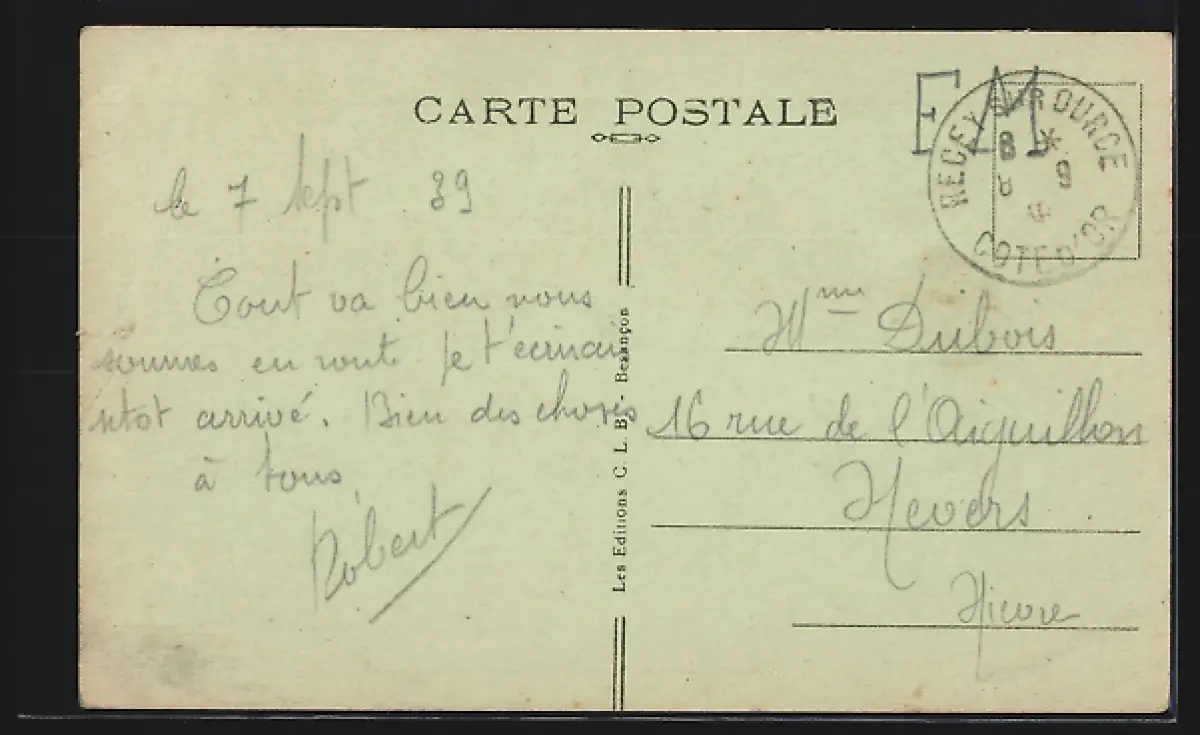 CARTE POSTALE
le 7 sept 39
Tout va bien nous
sommes en route je t'écrirai
sitot arrivé. Bien des choses
à tous
Robert
Les Editions C. L. B. - Besançon
FM
RECEY SUR OURCE
8 *
8 9
COTE D'OR
Mme Dubois
16 rue de l'Aiguillon
Nevers
Nievre